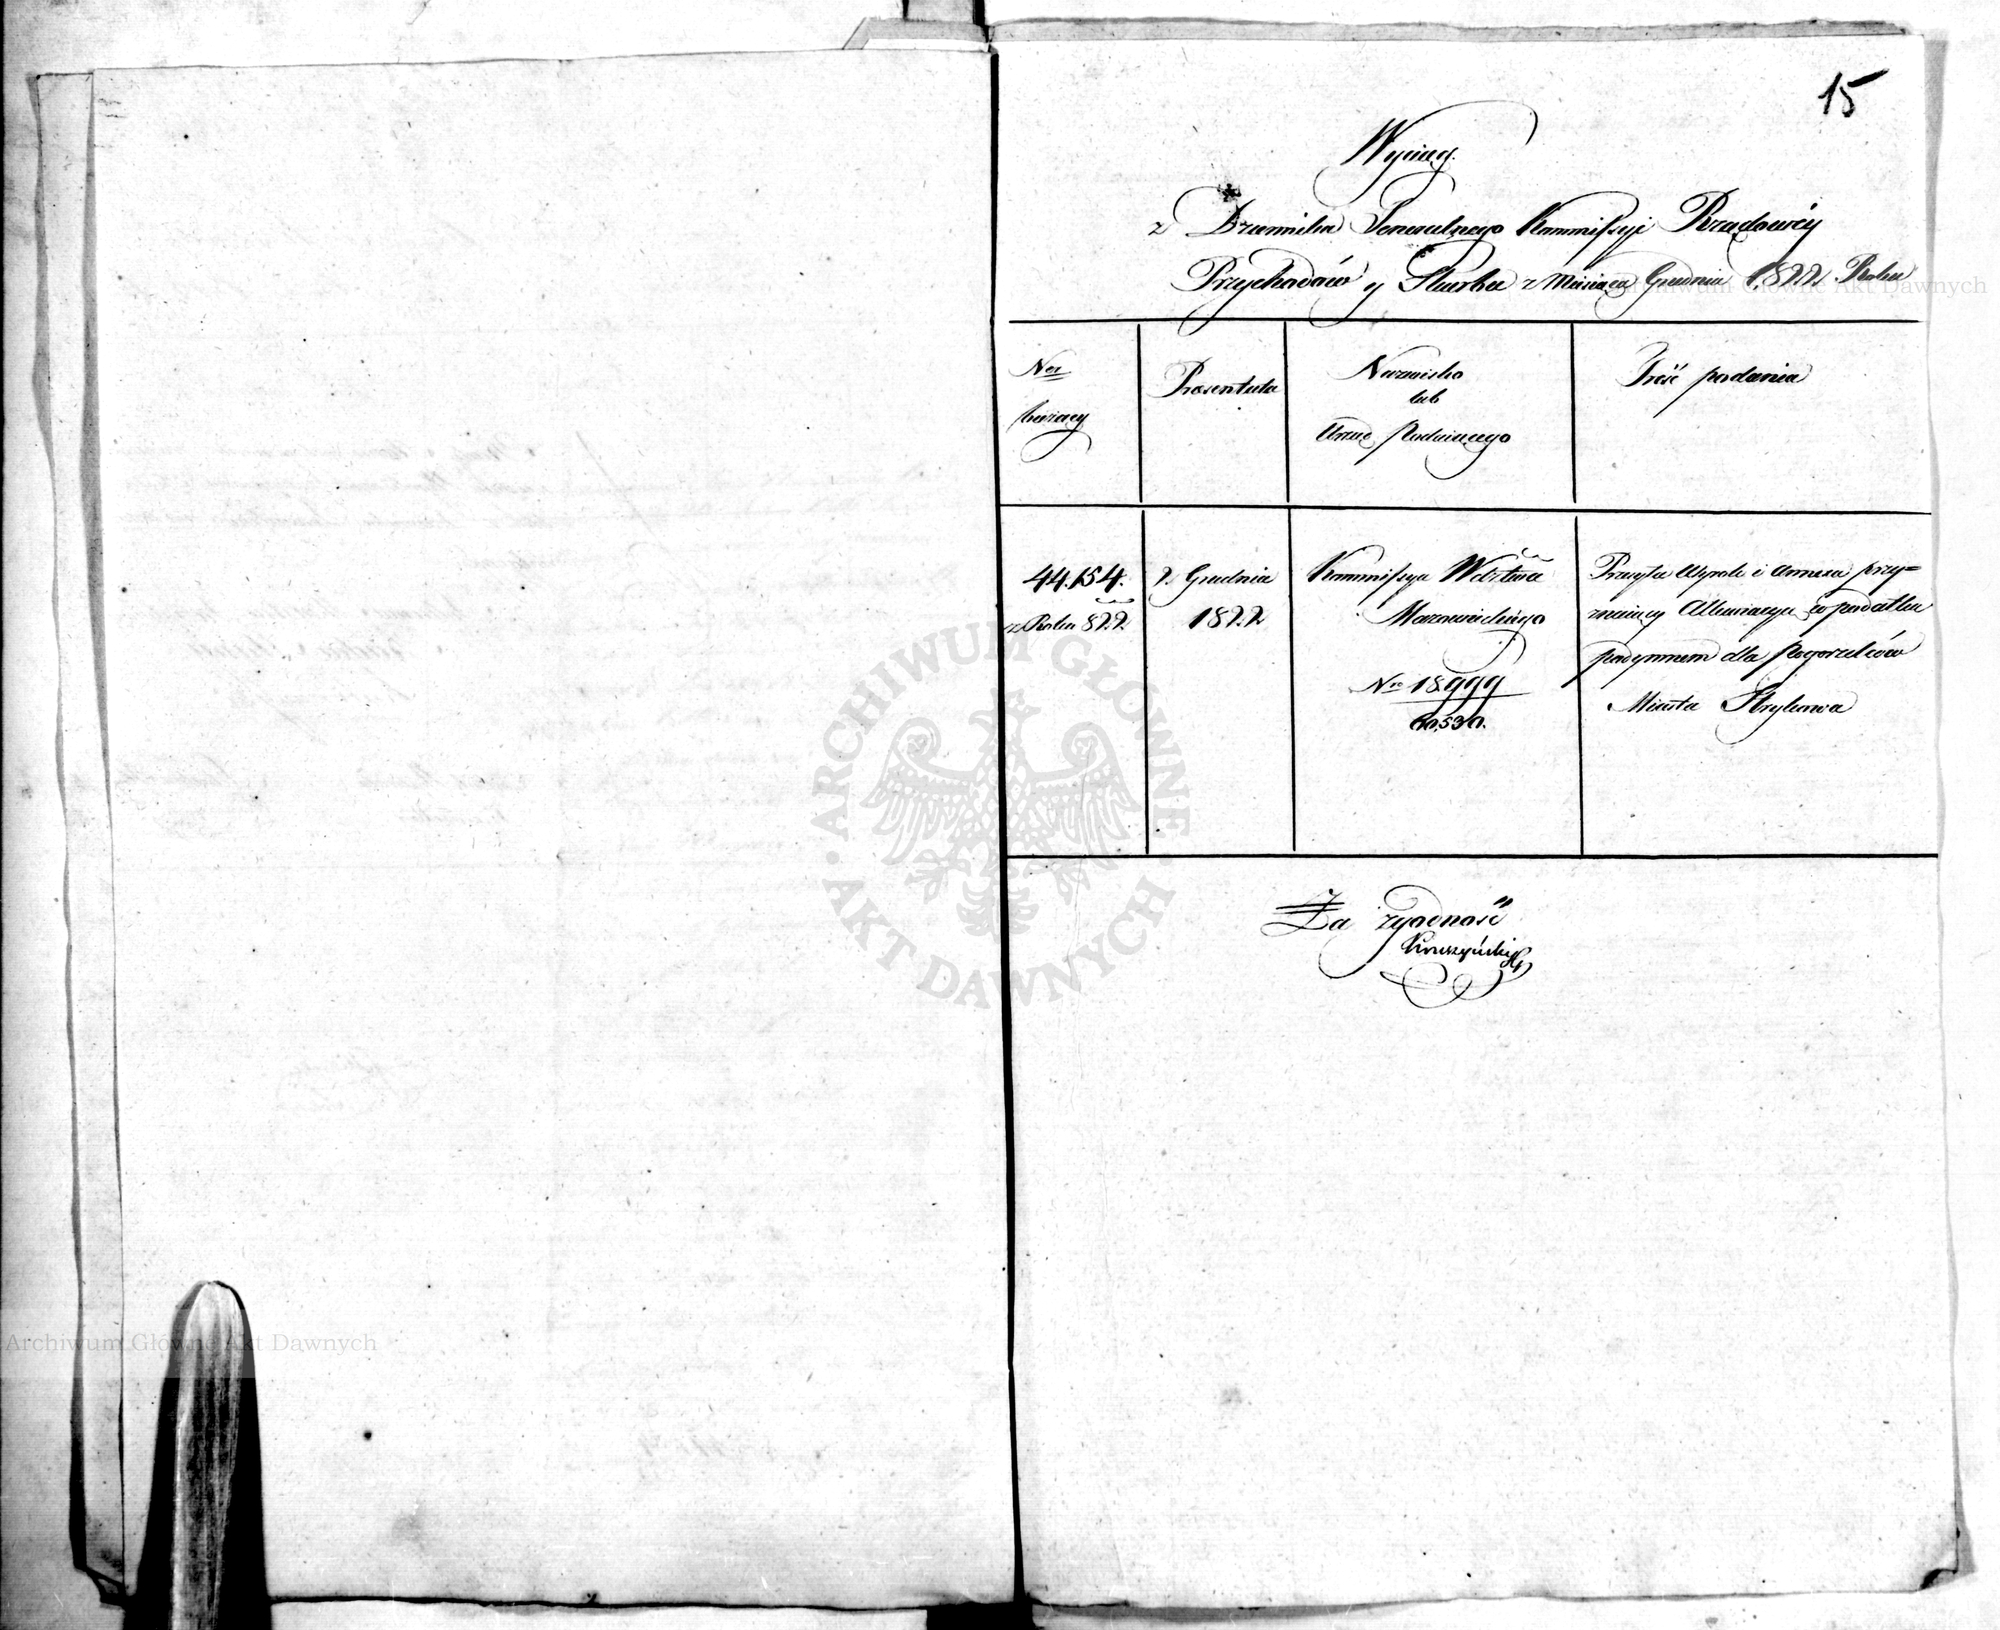 15
Wyciąg
z Dziennika Generalnego Kommissyi Rządowéy
Przychodów y Skarbu z Miesiąca Grudnia 1822 Roku
Nor
bieżący
Prezentata
Nazwisko
lub
Urząd Podaiącego
Treść podania
44.154.
z Roku 822
2. Grudnia
1822
Kommissya Wdztwa
Mazowieckiego
Nro 18999
Przesyła Wyrok i annexa przy=
znaiący Allewiacyą w podatku
podymnem dla Pogorzelców
Miasta Strykowa
Za zgodność
Archiwum Główne Akt Dawnych
Archiwum Główne Akt Dawnych
ARCHIWUM GŁÓWNE AKT DAWNYCH